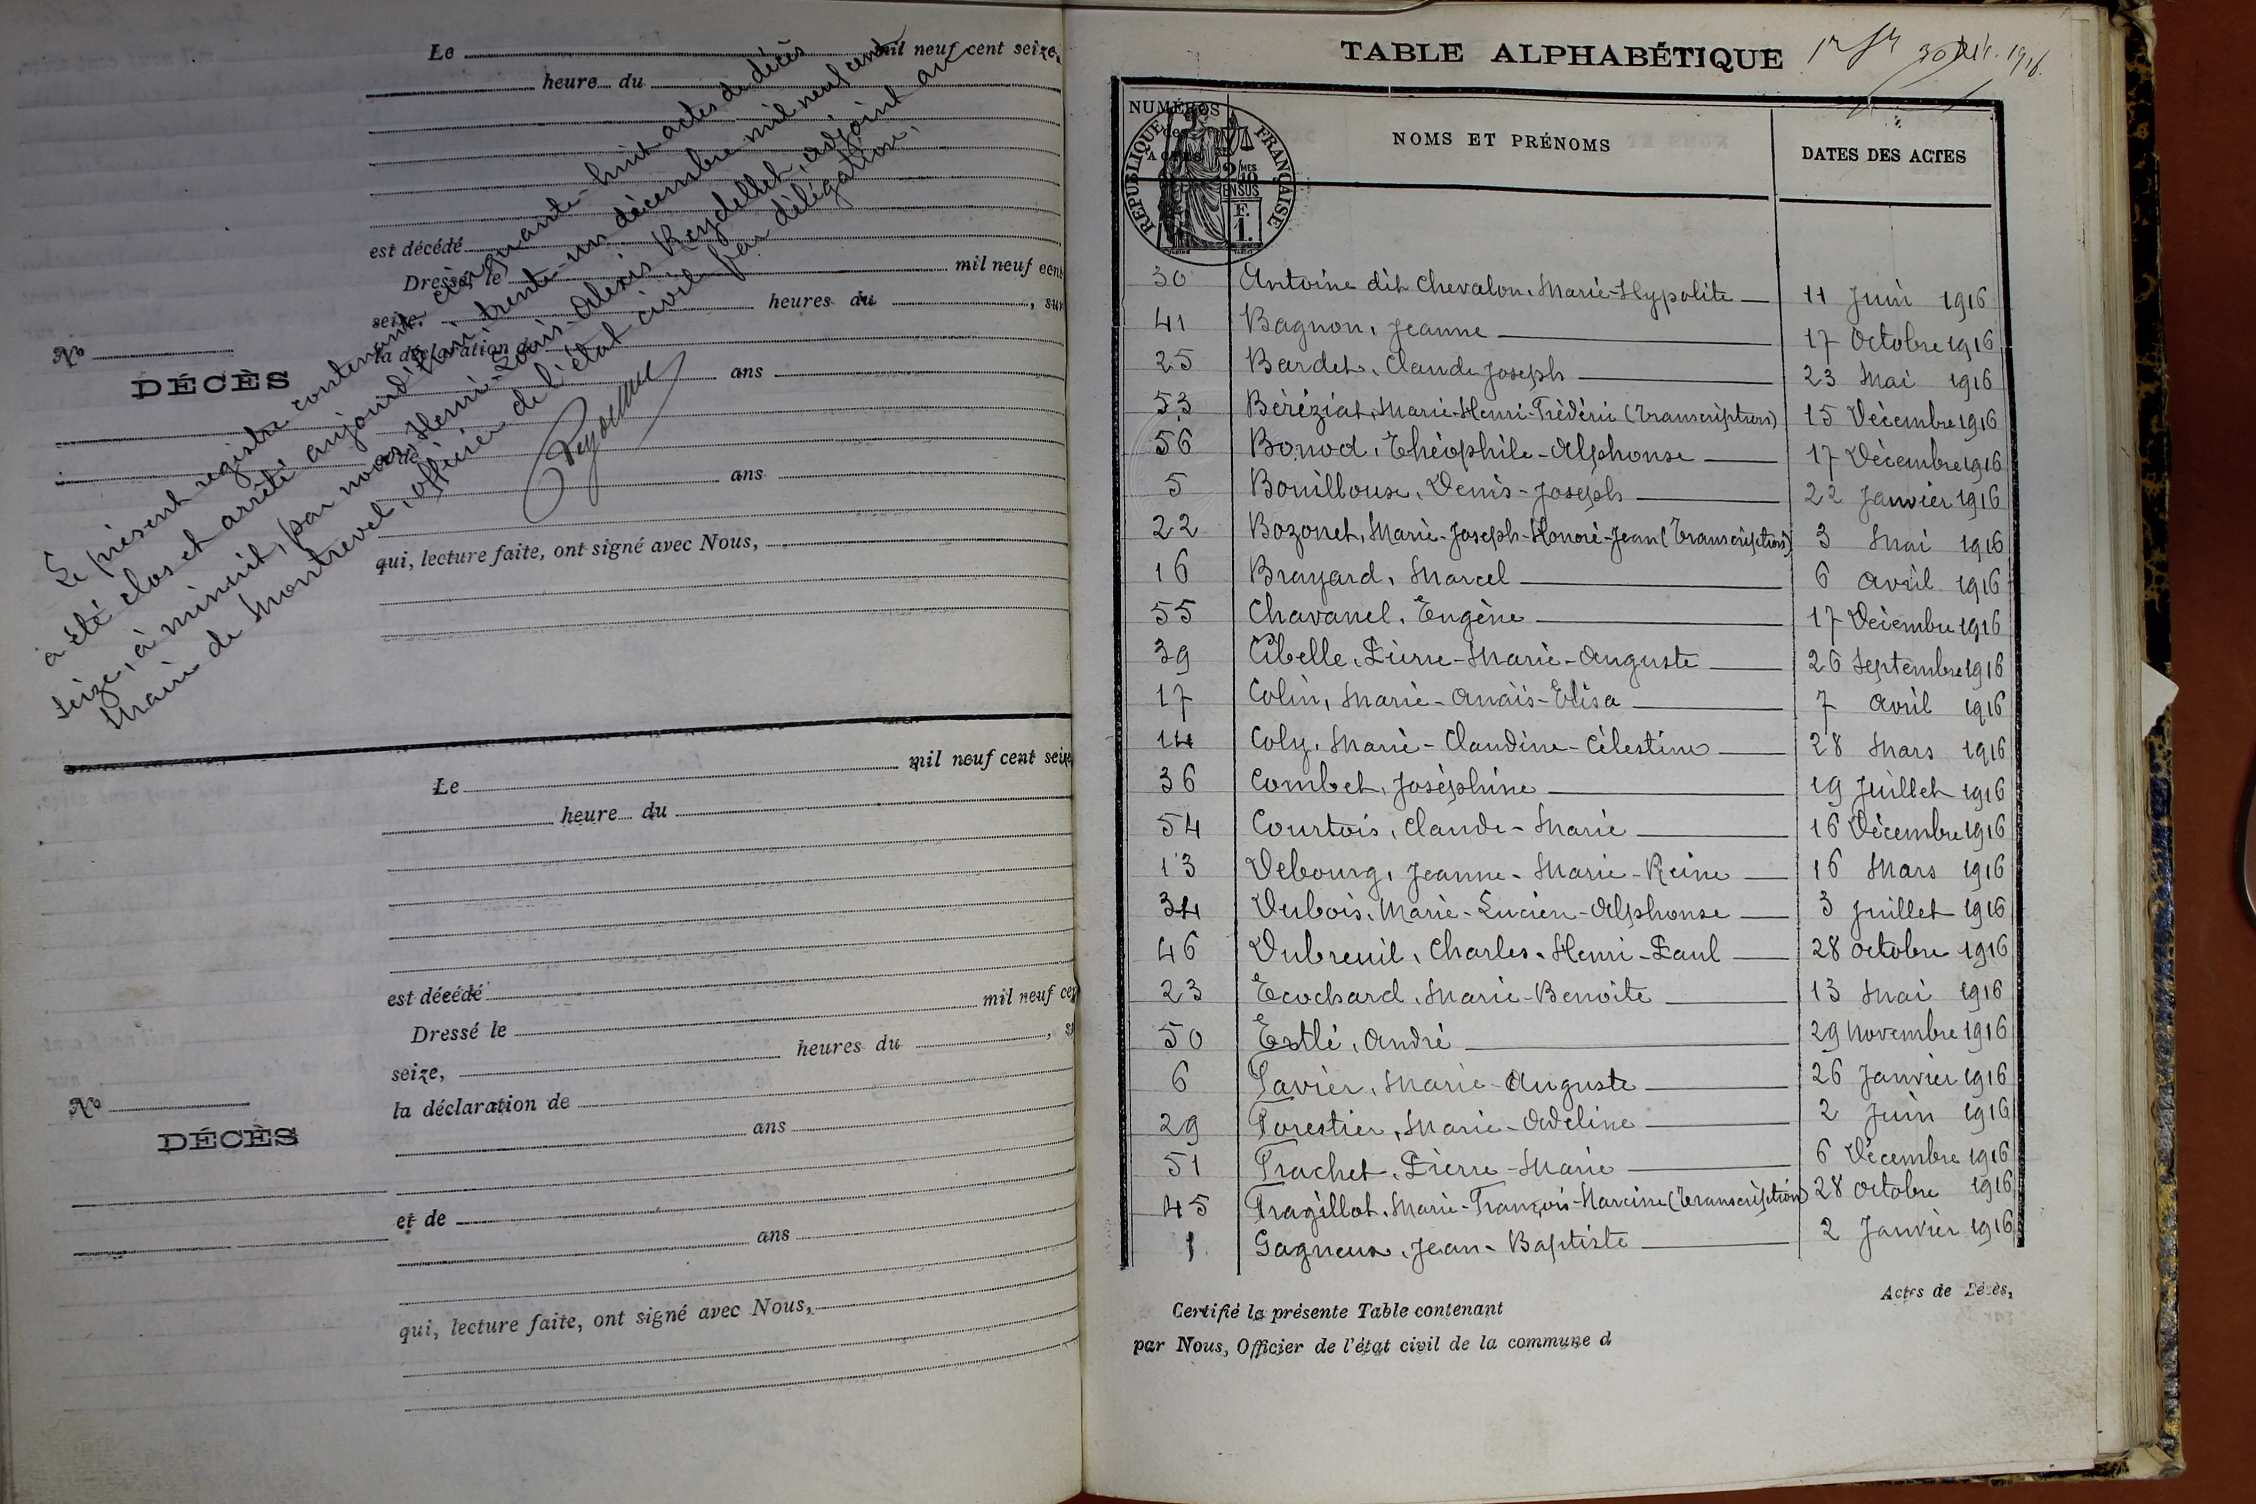 Le mil neuf cent seize,
heure du
est décédé
Dressé le mil neuf cent
seize, heures du , sur
la déclaration de
N°
DÉCÈS
ans
et de
ans
qui, lecture faite, ont signé avec Nous,
Le présent registre contenant cinquante-huit actes de décès
a été clos et arrêté aujourd'hui trente-un décembre mil neuf cent
seize, à minuit, par nous, Henri-Louis-Alexis Reydellet, adjoint au
Maire de Montrevel, officier de l'état civil par délégation.
Reydellet
Le mil neuf cent seize
heure du
est décédé
Dressé le mil neuf cen
seize, heures du , s
la déclaration de
N°
DÉCÈS
ans
et de
ans
qui, lecture faite, ont signé avec Nous,
TABLE ALPHABÉTIQUE
30 Déc. 1916.
NUMÉROS
des
ACTES
NOMS ET PRÉNOMS
DATES DES ACTES
RÉPUBLIQUE FRANÇAISE
2/10 MES
EN SUS
F.
1.
30 Antoine dit Chevalon, Marie-Hypolite 11 Juin 1916
41 Bagnon, Jeanne 17 Octobre 1916
25 Bardet, Claude Joseph 23 Mai 1916
53 Béréziat, Marie-Henri-Frédéric (Transcription) 15 Décembre 1916
56 Bonod, Théophile-Alphonse 17 Décembre 1916
5 Bouilloux, Denis-Joseph 22 Janvier 1916
22 Bozonet, Marie-Joseph-Honoré-Jean (Transcription) 3 Mai 1916
16 Brayard, Marcel 6 Avril 1916
55 Chavanel, Eugène 17 Décembre 1916
39 Cibelle, Pierre-Marie-Auguste 26 Septembre 1916
17 Colin, Marie-Anaïs-Elisa 7 Avril 1916
14 Coly, Marie-Claudine-Célestine 28 Mars 1916
36 Combet, Joséphine 19 Juillet 1916
54 Courtois, Claude-Marie 16 Décembre 1916
13 Debourg, Jeanne-Marie-Reine 16 Mars 1916
34 Dubois, Marie-Lucien-Alphonse 3 Juillet 1916
46 Dubreuil, Charles-Henri-Paul 28 Octobre 1916
23 Ecochard, Marie-Benoîte 13 Mai 1916
50 Extlé, André 29 Novembre 1916
6 Favier, Marie-Auguste 26 Janvier 1916
29 Forestier, Marie-Adeline 2 Juin 1916
51 Frachet, Pierre-Marie 6 Décembre 1916
45 Fragillot, Marie-François-Narcisse (Transcription) 28 Octobre 1916
1 Gagneux, Jean-Baptiste 2 Janvier 1916
Certifié la présente Table contenant Actes de Décès,
par Nous, Officier de l'état civil de la commune d